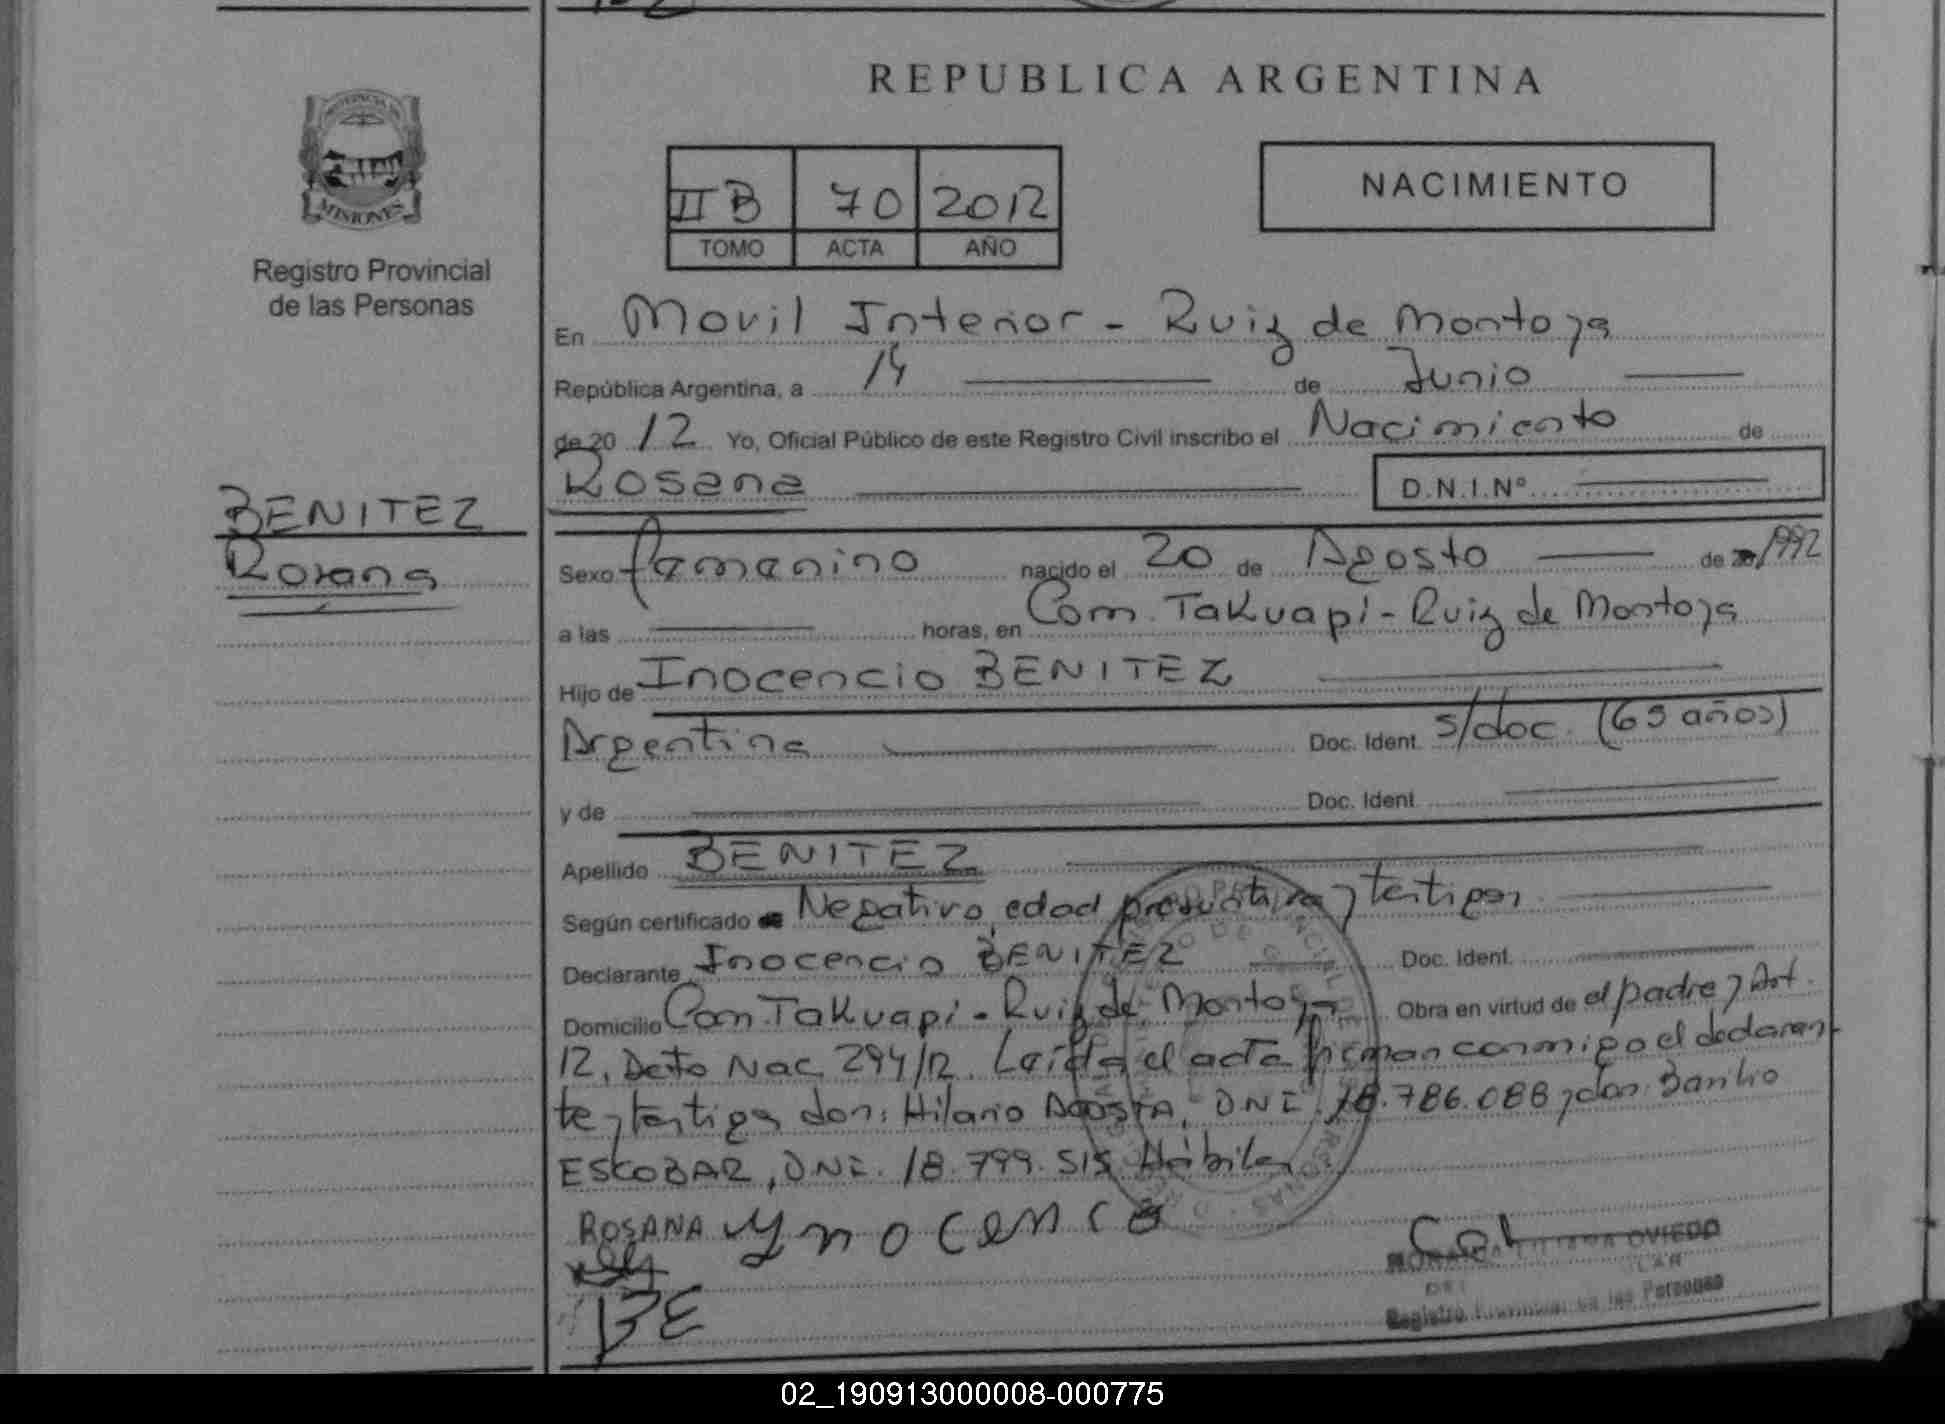 REPUBLICA ARGENTINA
PROVINCIA DE
MISIONES
Registro Provincial
de las Personas
II B 70 2012
TOMO ACTA AÑO
NACIMIENTO
En Movil Interior - Ruiz de Montoya
República Argentina, a 14 de Junio
de 20 12 Yo, Oficial Público de este Registro Civil inscribo el Nacimiento de
Rosana D.N.I.Nº
BENITEZ
Rosana
Sexo femenino nacido el 20 de Agosto de 1992
a las horas, en Com. Takuapi - Ruiz de Montoya
Hijo de Inocencio BENITEZ
Argentina Doc. Ident. s/doc. (65 años)
y de Doc. Ident.
Apellido BENITEZ
Según certificado de Negativo, edad presuntiva y testigos
Declarante Inocencio BENITEZ Doc. Ident.
Domicilio Com. Takuapi - Ruiz de Montoya Obra en virtud de el padre y Art.
12, Dcto Nac. 294/12. Leída el acta firman conmigo el declaran-
te y testigos don: Hilario ACOSTA, DNI. 18.786.088 y don: Basilio
ESCOBAR, DNI. 18.799.515 Hábiles
ROSANA ynocenco
BE
OVIEDO
Registro Provincial de las Personas
02_190913000008-000775